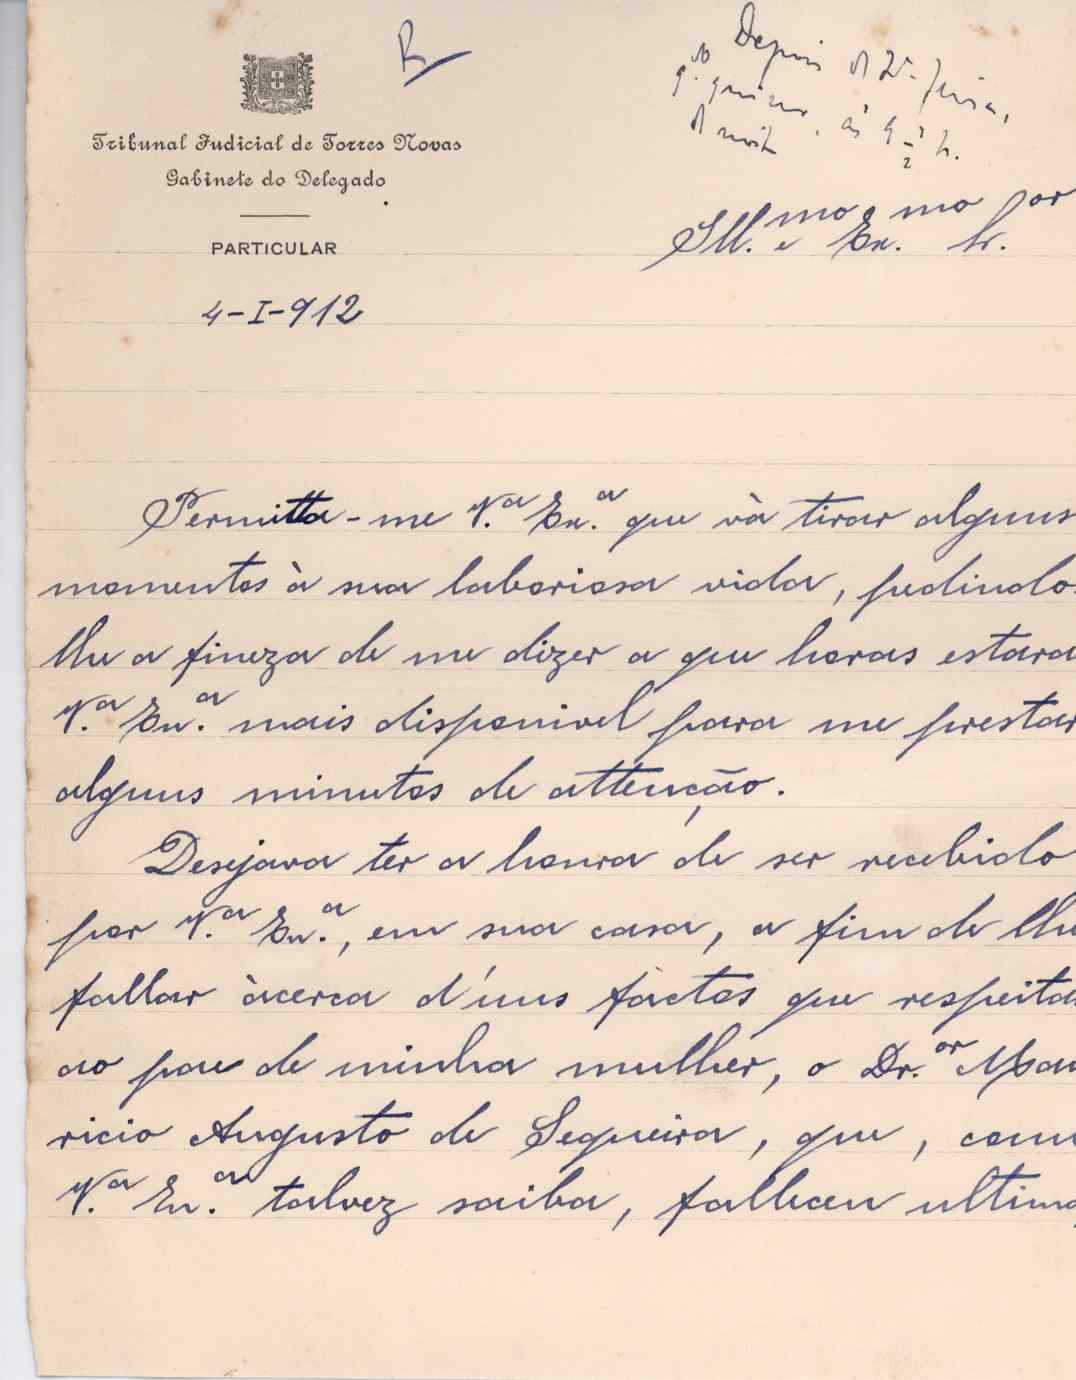 R
Depois de 2ª feira,
qdo quizer, às 9 1/2 h.
da noite
Tribunal Judicial de Torres Novas
Gabinete do Delegado
PARTICULAR
Ill.mo e Ex.mo Sr.or
4-I-912
Permitta-me V.ª Ex.ª que và tirar alguns
momentos à sua laboriosa vida, pedindo-
lhe a fineza de me dizer a que horas estara
V.ª Ex.ª mais disponivel para me prestar
alguns minutos de attenção.
Desejava ter a honra de ser recebido
por V.ª Ex.ª, em sua casa, a fim de lhe
fallar àcerca d'uns factos que respeitam
ao pae de minha mulher, o Dr.or Mau
ricio Augusto de Sequeira, que, como
V.ª Ex.ª talvez saiba, falleceu ultima